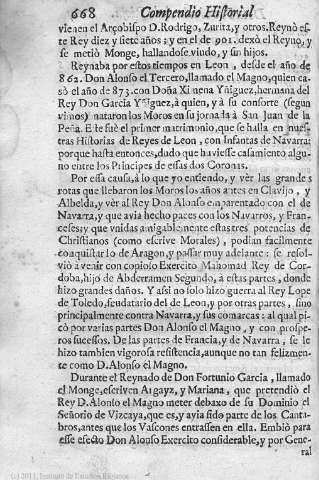 668 Compendio Historial
vienen el Arçobispo D. Rodrigo, Zurita, y otros. Reynò es-
te Rey diez y siete años; y en el de 901. dexò el Reyno, y
se metiò Monge, hallandose viudo, y sin hijos.
Reynaba por estos tiempos en Leon, desde el año de
862. Don Alonso el Tercero, llamado el Magno, quien ca-
sò el año de 873. con Doña Ximena Yñiguez, hermana del
Rey Don Garcia Yñiguez, à quien, y à su consorte (segun
vimos) mataron los Moros en su jornada à San Juan de la
Peña. Este fuè el primer matrimonio, que se halla en nues-
tras Historias de Reyes de Leon, con Infantas de Navarra:
porque hasta entonces, dudo que huviesse casamiento algu-
no entre los Principes de essas dos Coronas.
Por essa causa, à lo que yo entiendo, y vèr las grandes
rotas que llebaron los Moros los años antes en Clavijo, y
Albelda, y vèr al Rey Don Alonso emparentado con el de
Navarra, y que avia hecho paces con los Navarros, y Fran-
ceses; y que vnidas amigablemente estas tres potencias de
Christianos (como escrive Morales), podian facilmente
conquistar lo de Aragon, y passar muy adelante: se resol-
viò a venir con copioso Exercito Mahomad Rey de Cor-
doba, hijo de Abderramen Segundo, à estas partes, donde
hizo grandes daños. Y assi no solo hizo guerra al Rey Lope
de Toledo, feudatario del de Leon, y por otras partes, sino
principalmente contra Navarra, y sus comarcas: al qual pi-
cò por varias partes Don Alonso el Magno, y con prospe-
ros sucessos. De las partes de Francia, y de Navarra, se le
hizo tambien vigorosa resistencia, aunque no tan felizmen-
te como D. Alonso el Magno.
Durante el Reynado de Don Fortunio Garcia, llamado
el Monge, escriven Argayz, y Mariana, que pretendiò el
Rey D. Alonso el Magno meter debaxo de su Dominio el
Señorio de Vizcaya, que es, y avia sido parte de los Canta-
bros, antes que los Vascones entrassen en ella. Embiò para
esse efecto Don Alonso Exercito considerable, y por Gene-
ral
(c) 2011, Instituto de Estudios Riojanos